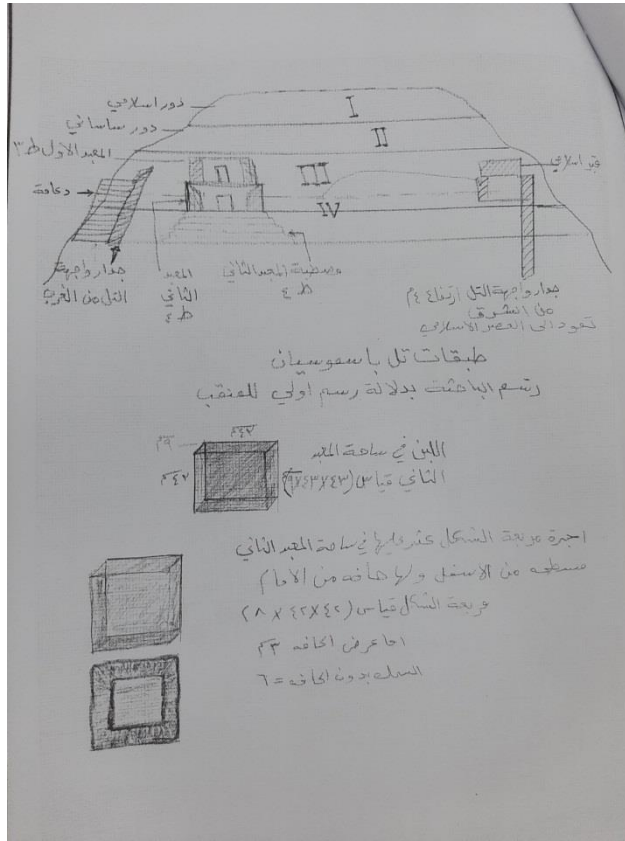 دور اسلامي
دور ساساني
المعبد الاول ط٣
دعامة
I
II
III
IV
قبر اسلامي
جدار واجهة
التل من الغرب
المعبد
الثاني
ط٤
مصطبة المعبد الثاني
ط٤
جدار واجهة التل ارتفاع ٤م
من الشرق
تعود الى العصر الاسلامي
طبقات تل باسموسيان
رسم الباحثة بدلالة رسم اولي للمنقب
اللبن في ساحة المعبد
الثاني قياس (٤٣×٤٣×٩)
اجرة مربعة الشكل عثر عليها في ساحة المعبد الثاني
مسطحه من الاسفل ولها حافه من الامام
مربعة الشكل قياس (٤٢×٤٢×٨)
اما عرض الحافه ٣سم
السمك بدون الحافه = ٦